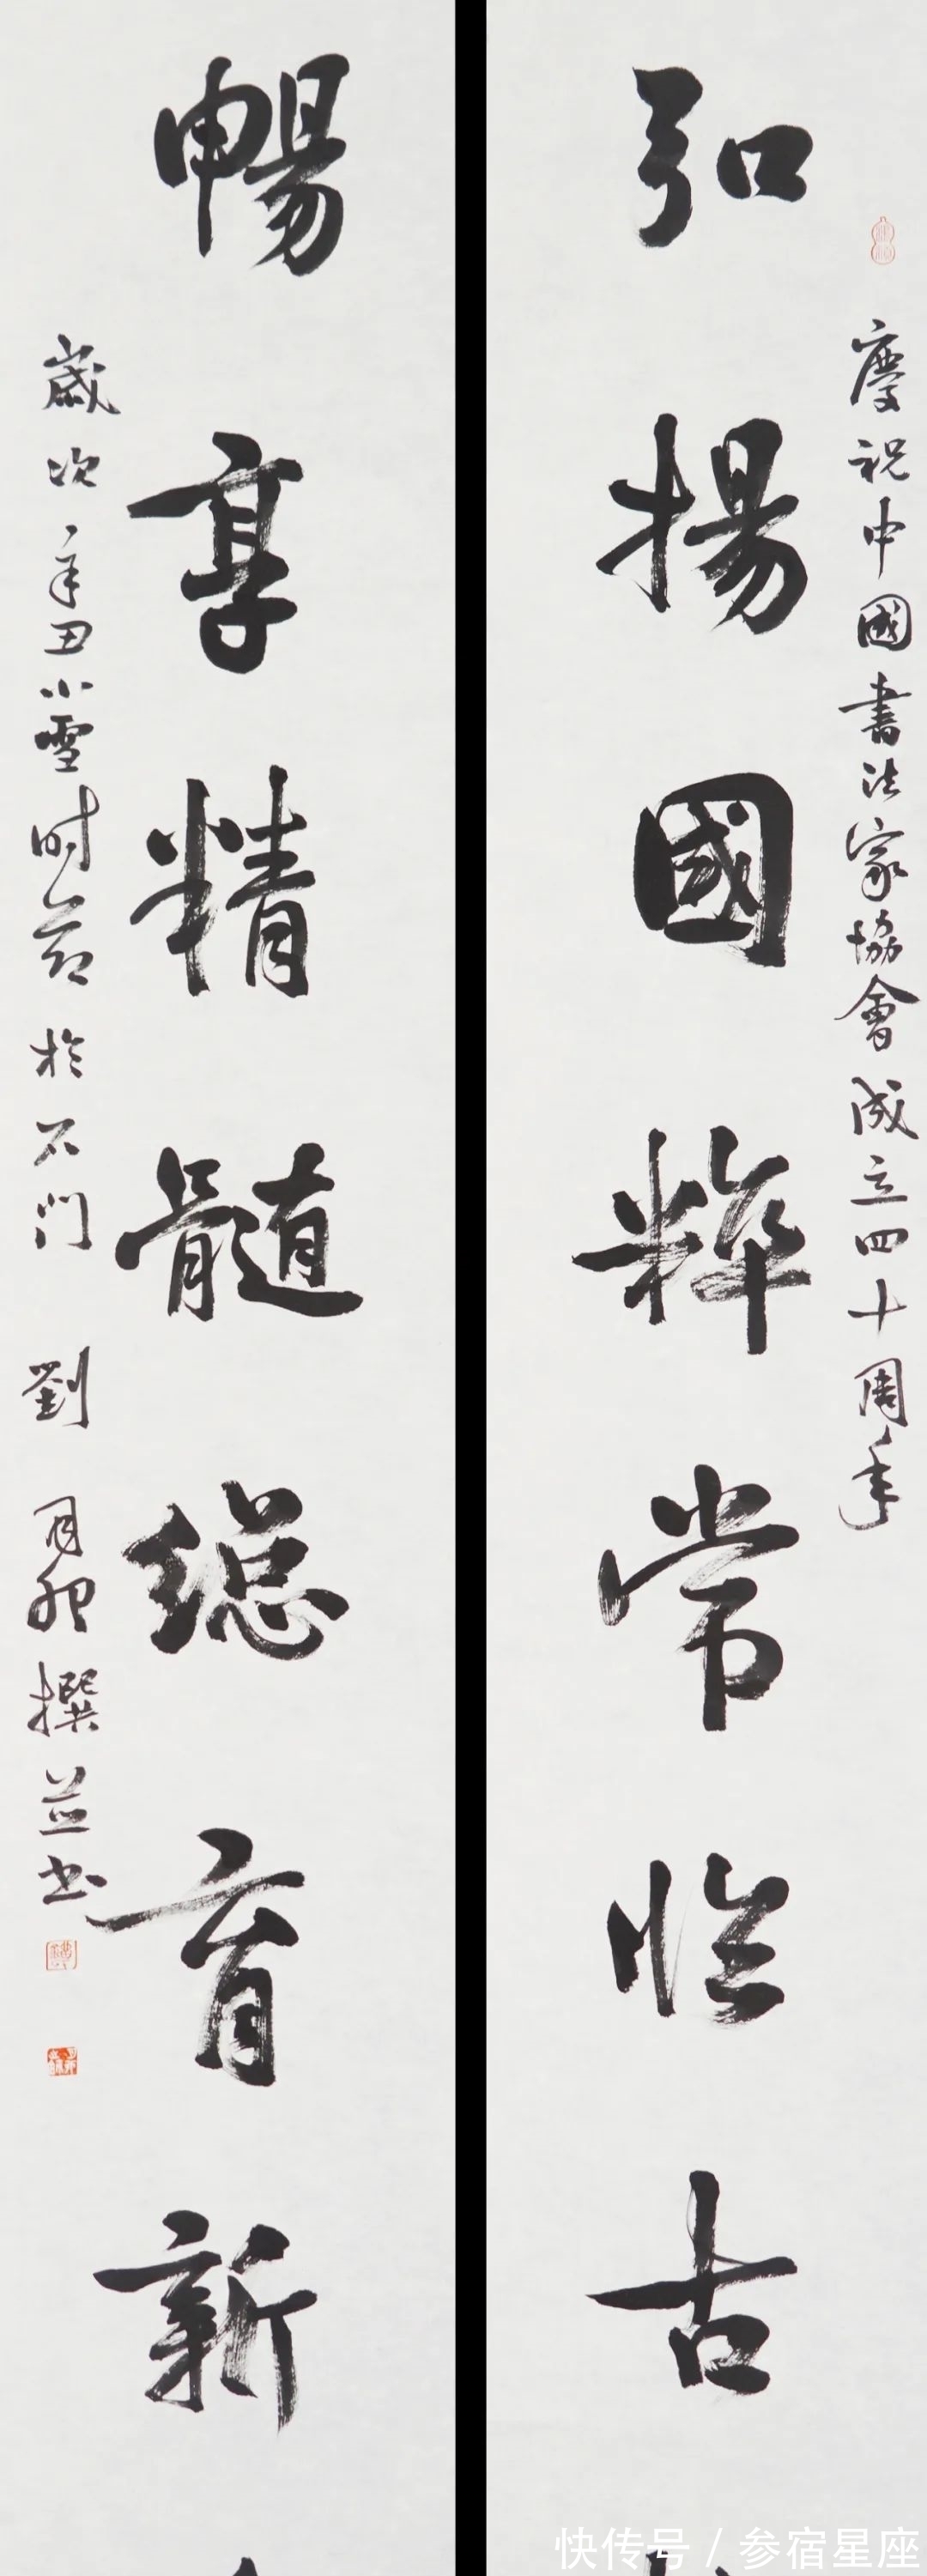 慶祝中國書法家協會成立四十周年
弘揚國粹常臨古
暢享精髓總育新
歲次辛丑小雪时節於石门 劉月卯撰並书
快传号 / 参宿星座